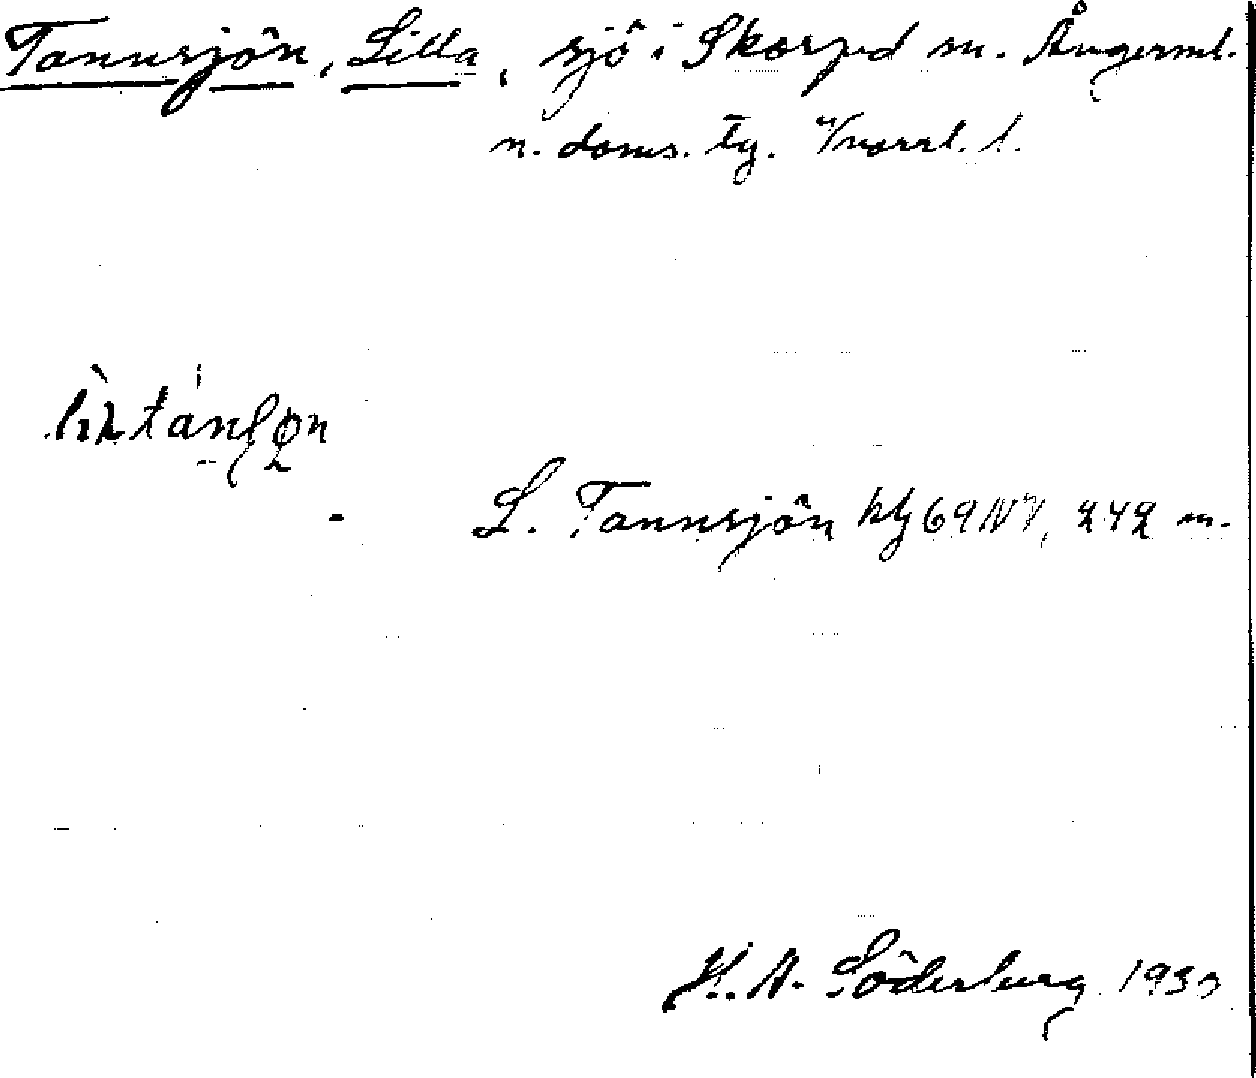 Tannsjön, Lilla, sjö i Skorped sn. Ångerml.
n. doms. tg. Vnorrl. l.
L. Tannsjön kbl 69 NV, 242 m.
K. A. Söderberg 1930